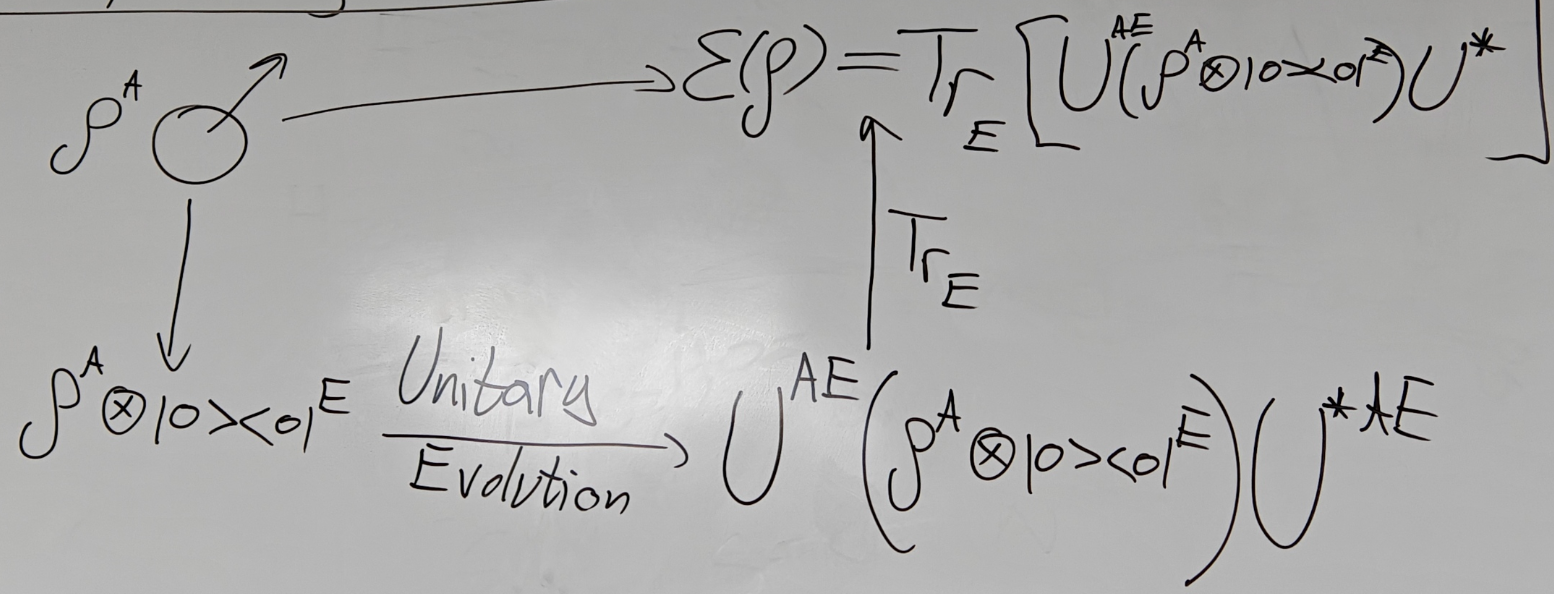 ρ^A
ℰ(ρ) = Tr_E [U^{AE}(ρ^A ⊗ |0><0|^E)U^*]
Tr_E
ρ^A ⊗ |0><0|^E
Unitary
Evolution
U^{AE}(ρ^A ⊗ |0><0|^E)U^{*AE}